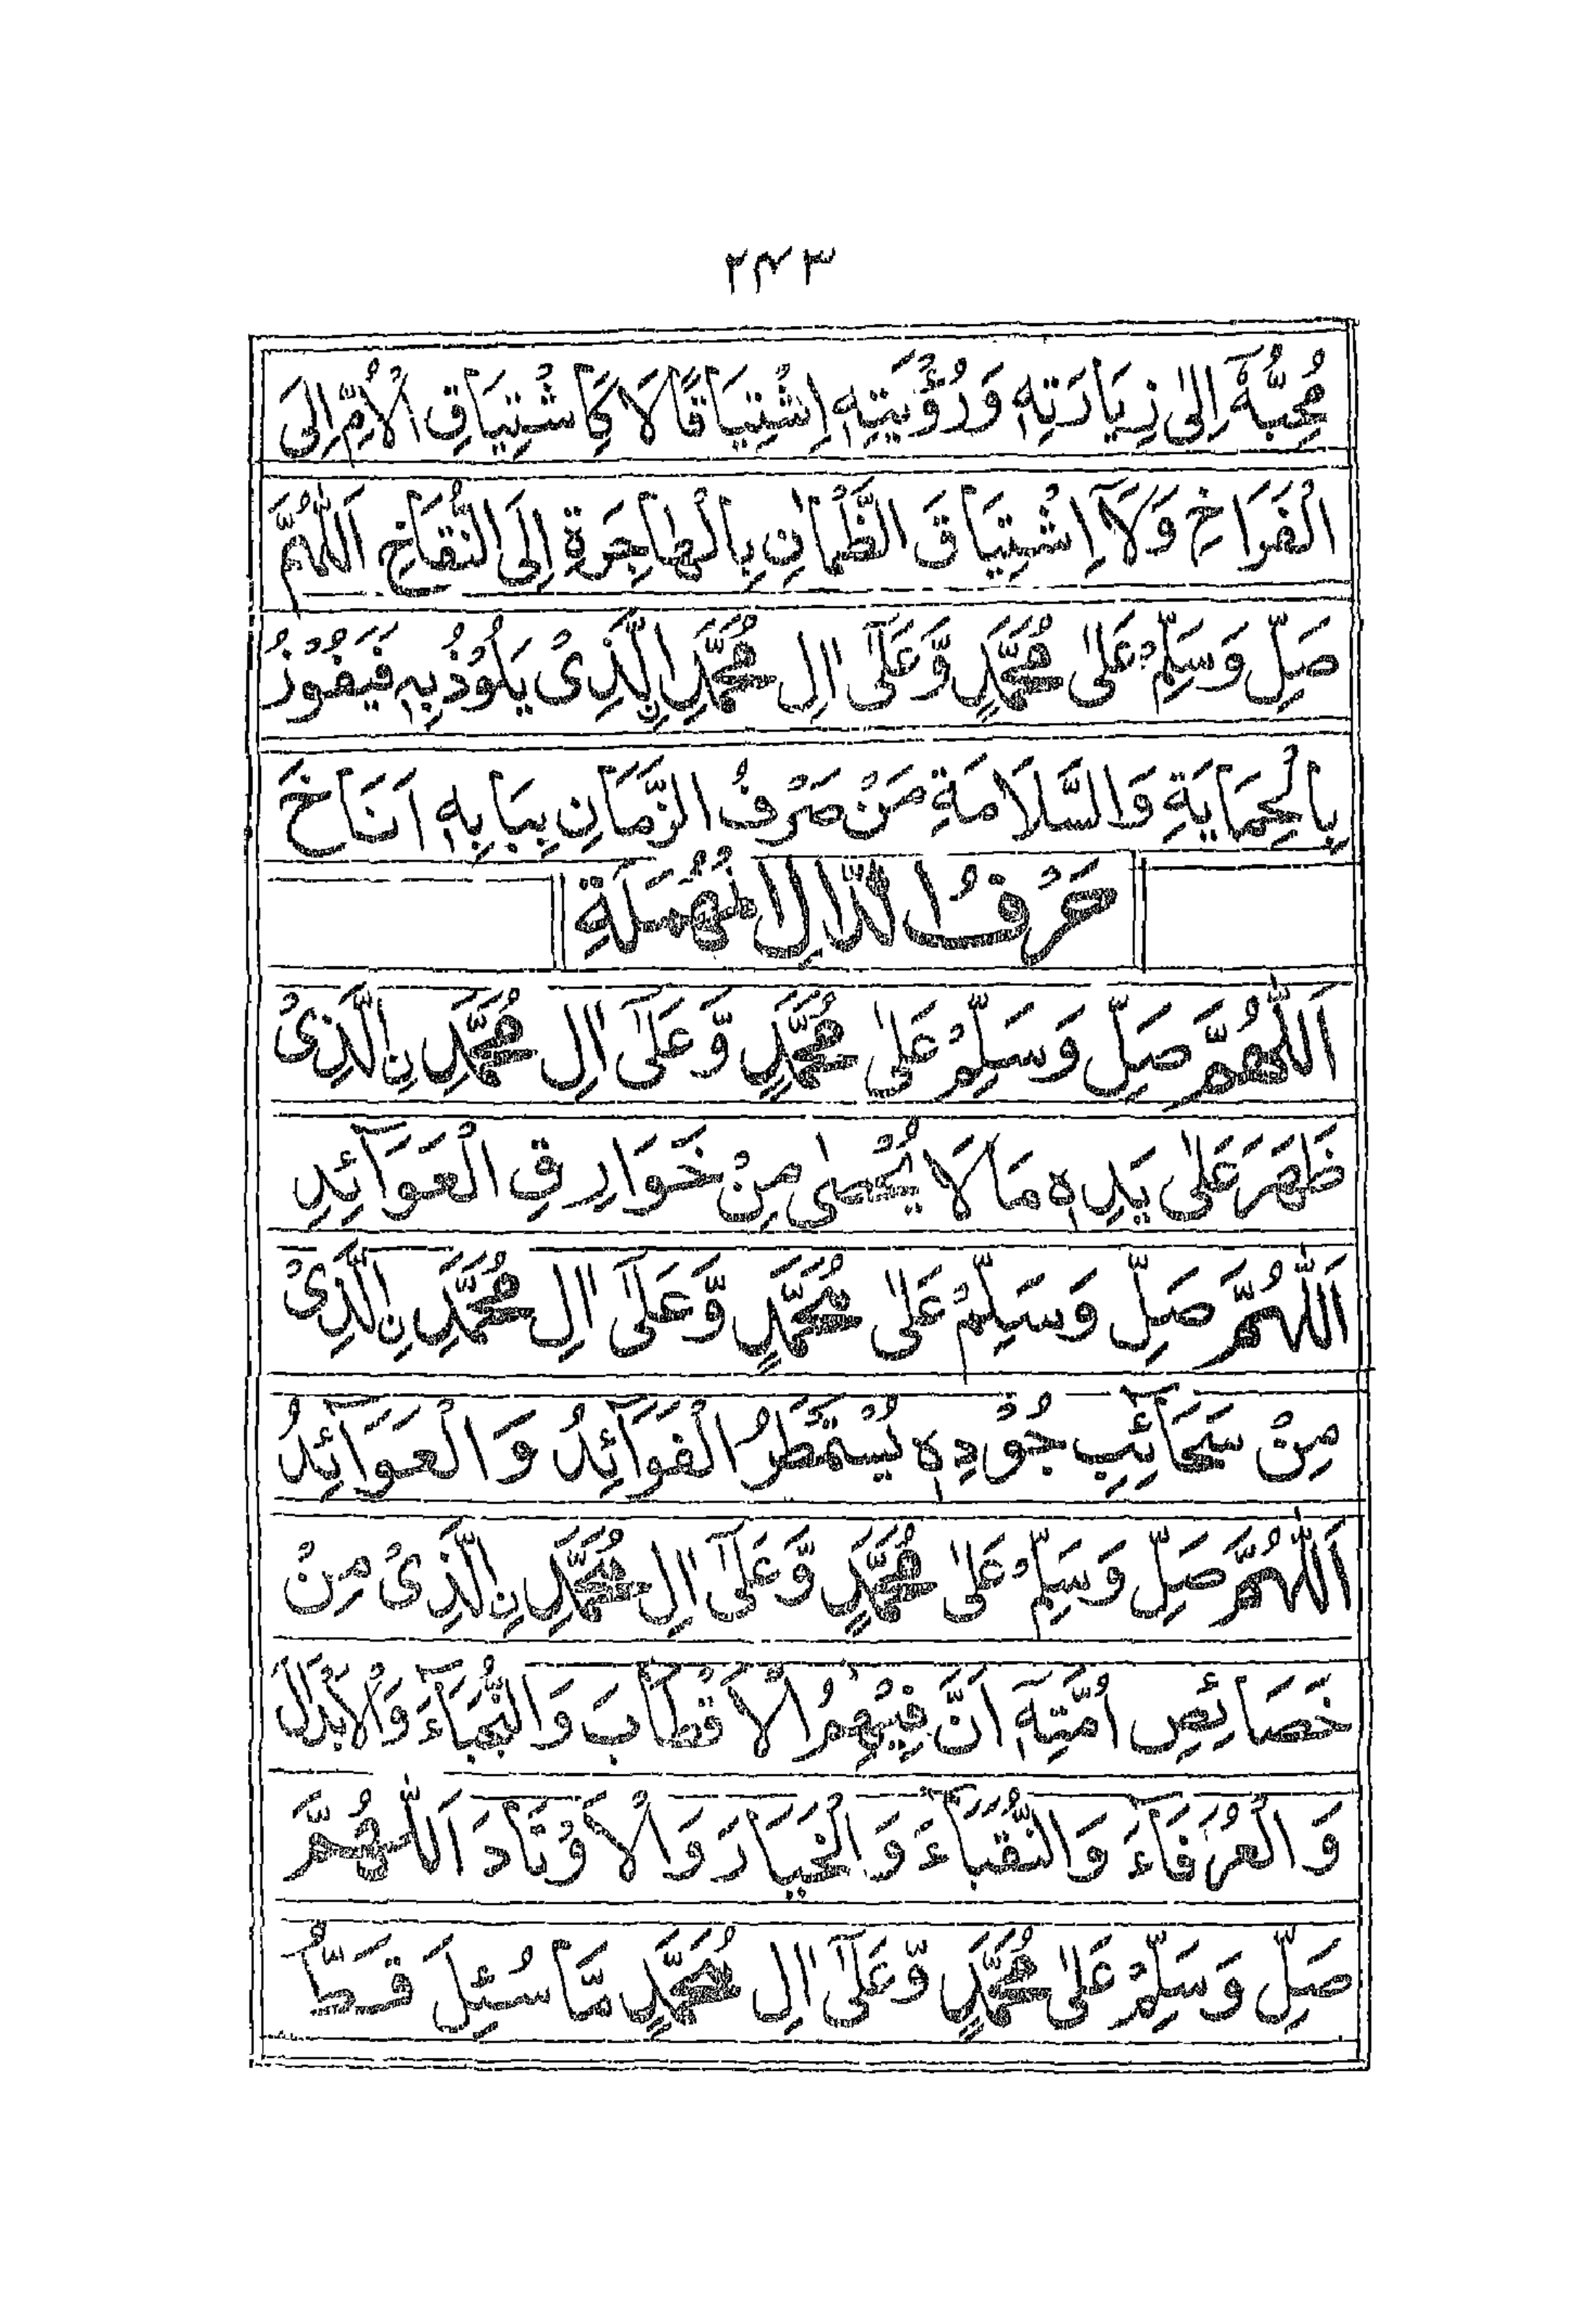 ۲۴۳
مُحِبُّهٗ اِلٰی زِیَارَتِهٖ وَرُؤْیَتِهٖ اِشْتِیَاقًا لَا کَاشْتِیَاقِ الْاُمِّ اِلَی
الْفَرَاخِ وَلَآ اِشْتِیَاقَ الظَّمْاٰنِ بِالْهَاجِرَةِ اِلَی النُّقَاخِ اَللّٰهُمَّ
صَلِّ وَسَلِّمْ عَلٰی مُحَمَّدٍ وَّعَلٰٓی اٰلِ مُحَمَّدِ نِ الَّذِیْ یَلُوْذُ بِهٖ فَیَفُوْزُ
بِالْحِمَایَةِ وَالسَّلَامَةِ مَنْ صَرْفُ الزَّمَانِ بِبَابِهٖ اَنَاخَ
حَرْفُ الدَّالِ الْمُهْمَلَةِ
اَللّٰهُمَّ صَلِّ وَسَلِّمْ عَلٰی مُحَمَّدٍ وَّعَلٰٓی اٰلِ مُحَمَّدِ نِ الَّذِیْ
ظَهَرَ عَلٰی یَدِهٖ مَا لَا یُحْصٰی مِنْ خَوَارِقِ الْعَوَآئِدِ
اَللّٰهُمَّ صَلِّ وَسَلِّمْ عَلٰی مُحَمَّدٍ وَّعَلٰٓی اٰلِ مُحَمَّدِ نِ الَّذِیْ
مِنْ سَحَآئِبِ جُوْدِهٖ یُسْتَمْطَرُ الْفَوَآئِدُ وَالْعَوَآئِدُ
اَللّٰهُمَّ صَلِّ وَسَلِّمْ عَلٰی مُحَمَّدٍ وَّعَلٰٓی اٰلِ مُحَمَّدِ نِ الَّذِیْ مِنْ
خَصَائِصِ اُمَّتِهٖٓ اَنَّ فِیْهِمُ الْاَقْطَابَ وَالنُّجَبَآءَ وَالْاَبْدَالَ
وَالْعُرَفَآءَ وَالنُّقَبَآءَ وَالْخِیَارَ وَالْاَوْتَادَ اَللّٰهُمَّ
صَلِّ وَسَلِّمْ عَلٰی مُحَمَّدٍ وَّعَلٰٓی اٰلِ مُحَمَّدٍ مَّا سُئِلَ قَطُّ